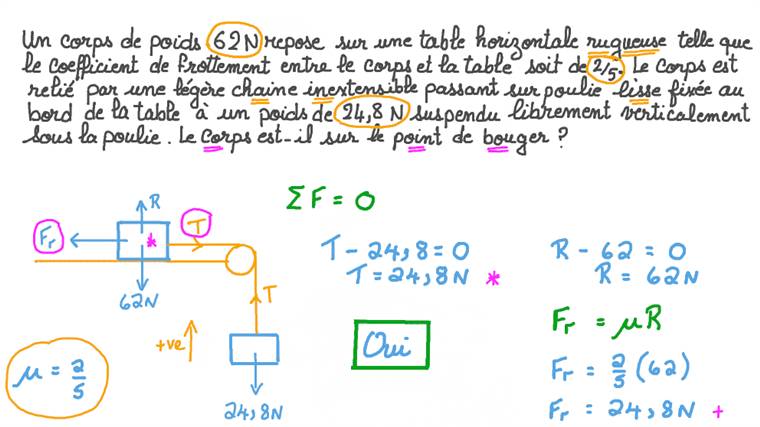 Un corps de poids 62N repose sur une table horizontale rugueuse telle que
le coefficient de frottement entre le corps et la table soit de 2/5. Le corps est
relié par une légère chaine inextensible passant sur poulie lisse fixée au
bord de la table à un poids de 24,8 N suspendu librement verticalement
sous la poulie. Le corps est-il sur le point de bouger ?
R
Fr
*
T
62N
T
+ve
24,8N
μ = 2/5
ΣF = 0
T - 24,8 = 0
T = 24,8N *
Oui
R - 62 = 0
R = 62N
Fr = μR
Fr = 2/5 (62)
Fr = 24,8N +